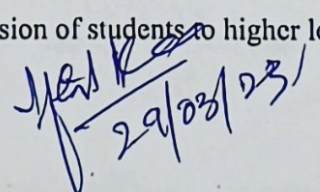 sion of students to higher le
29/03/23